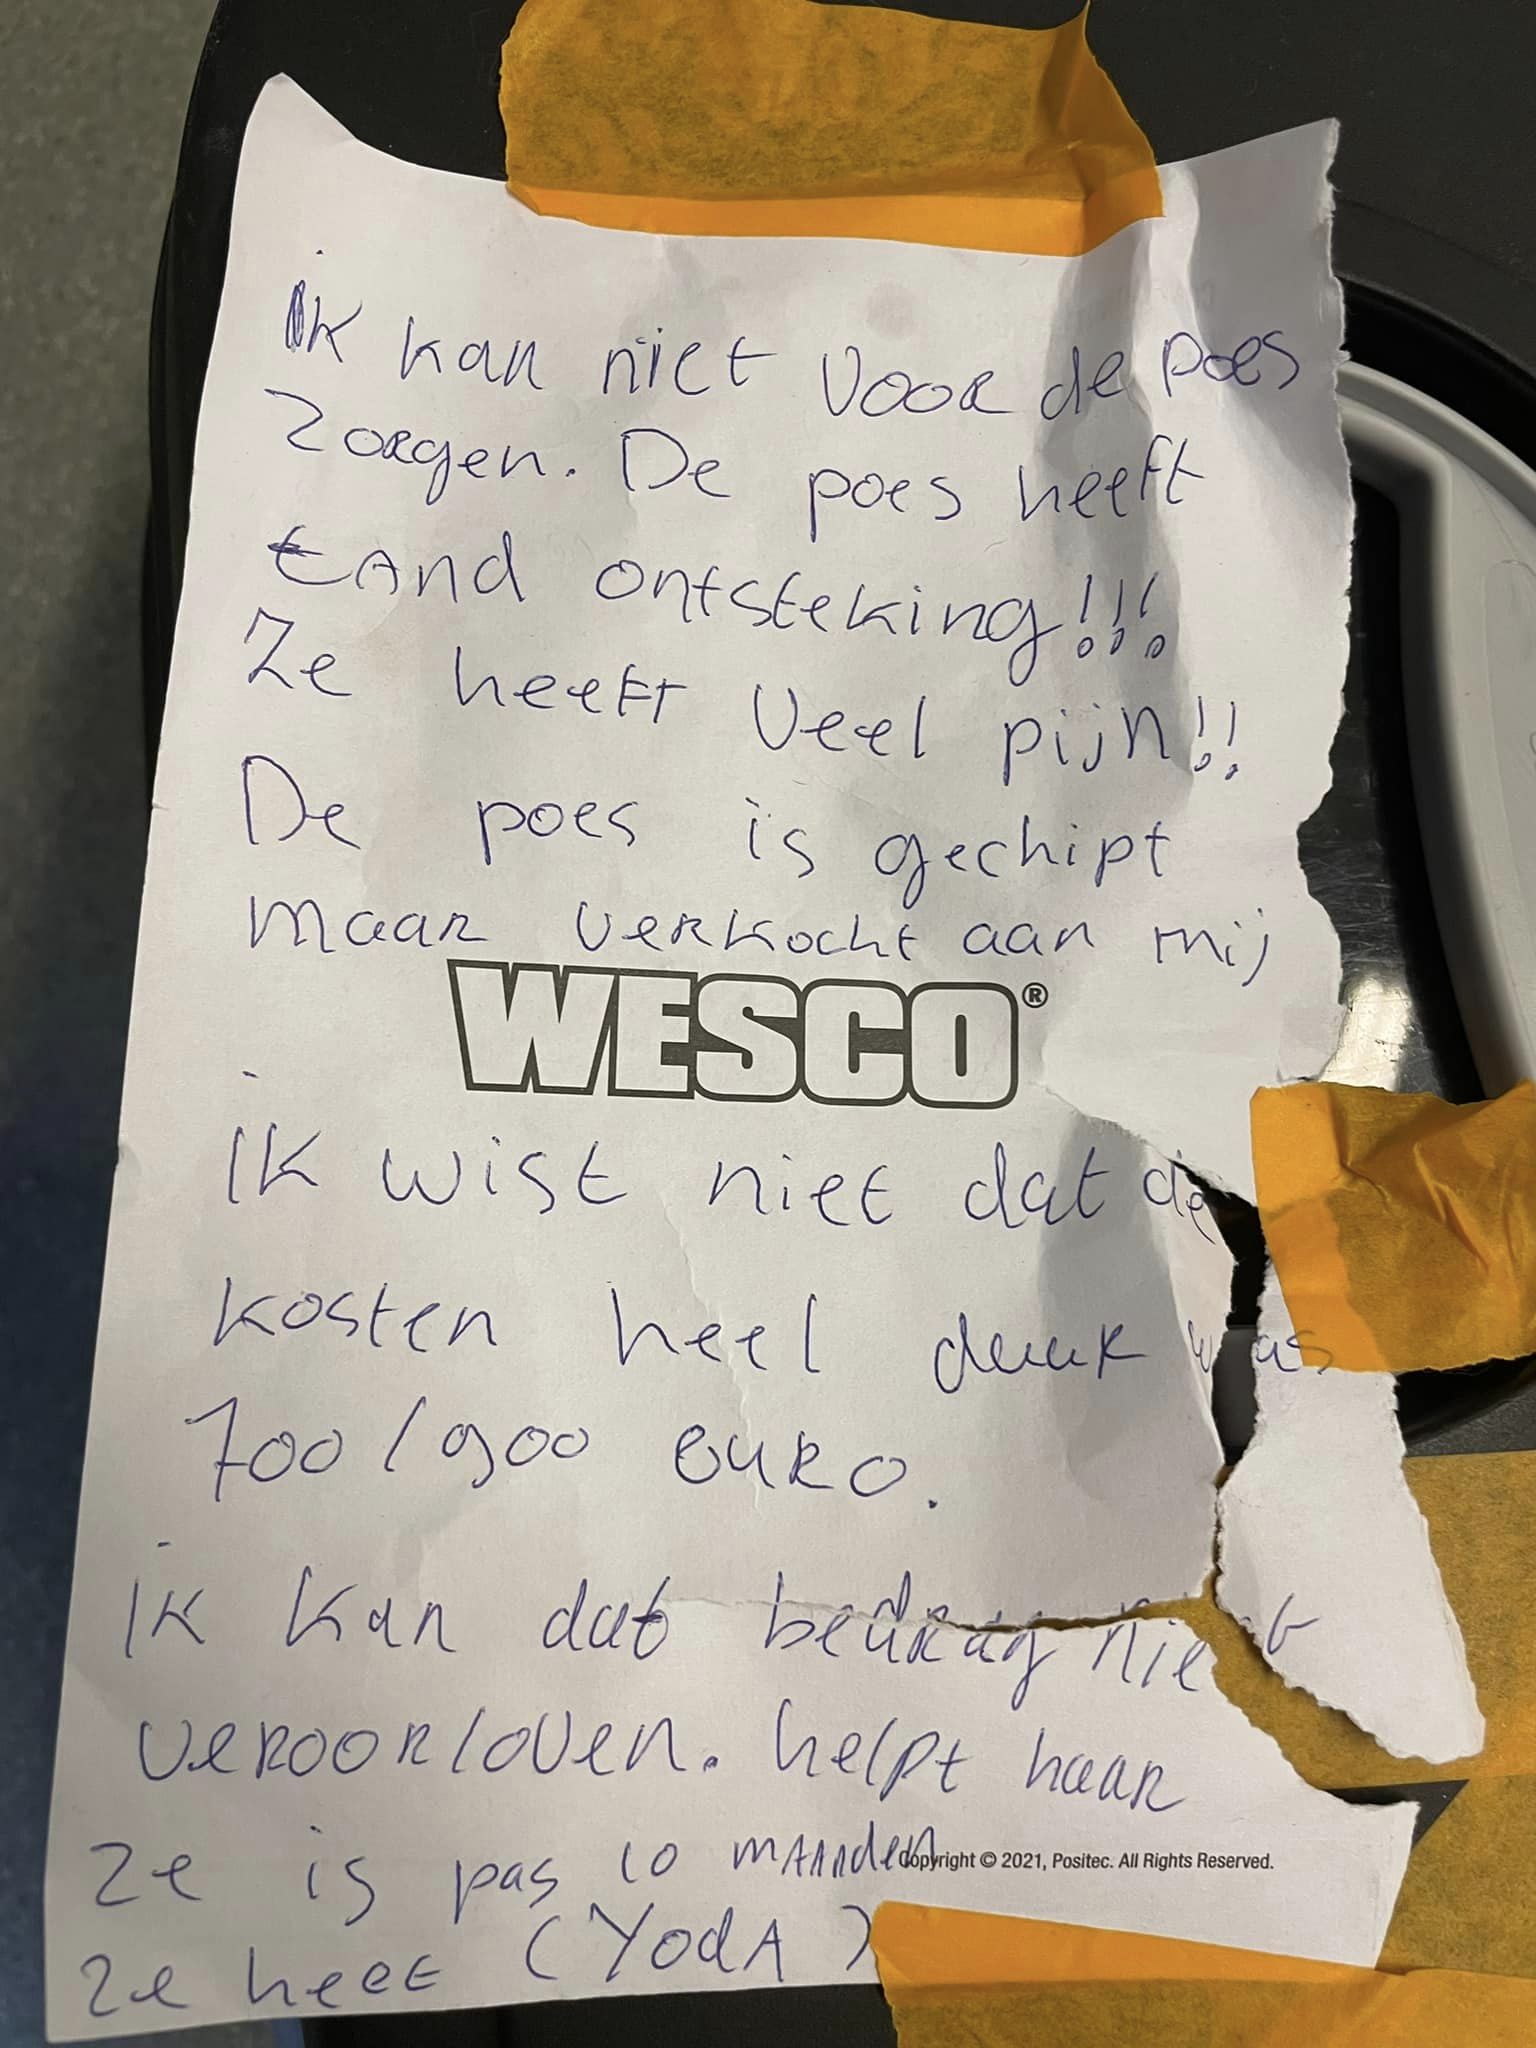 ik kan niet voor de poes
zorgen. De poes heeft
tand ontsteking!!!
Ze heeft veel pijn!!
De poes is gechipt
maar verkocht aan mij
WESCO®
ik wist niet dat de
kosten heel duur was
700/900 euro.
ik kan dat bedrag niet
veroorloven. helpt haar
ze is pas 10 maanden
Copyright © 2021, Positec. All Rights Reserved.
ze heet (YodA)